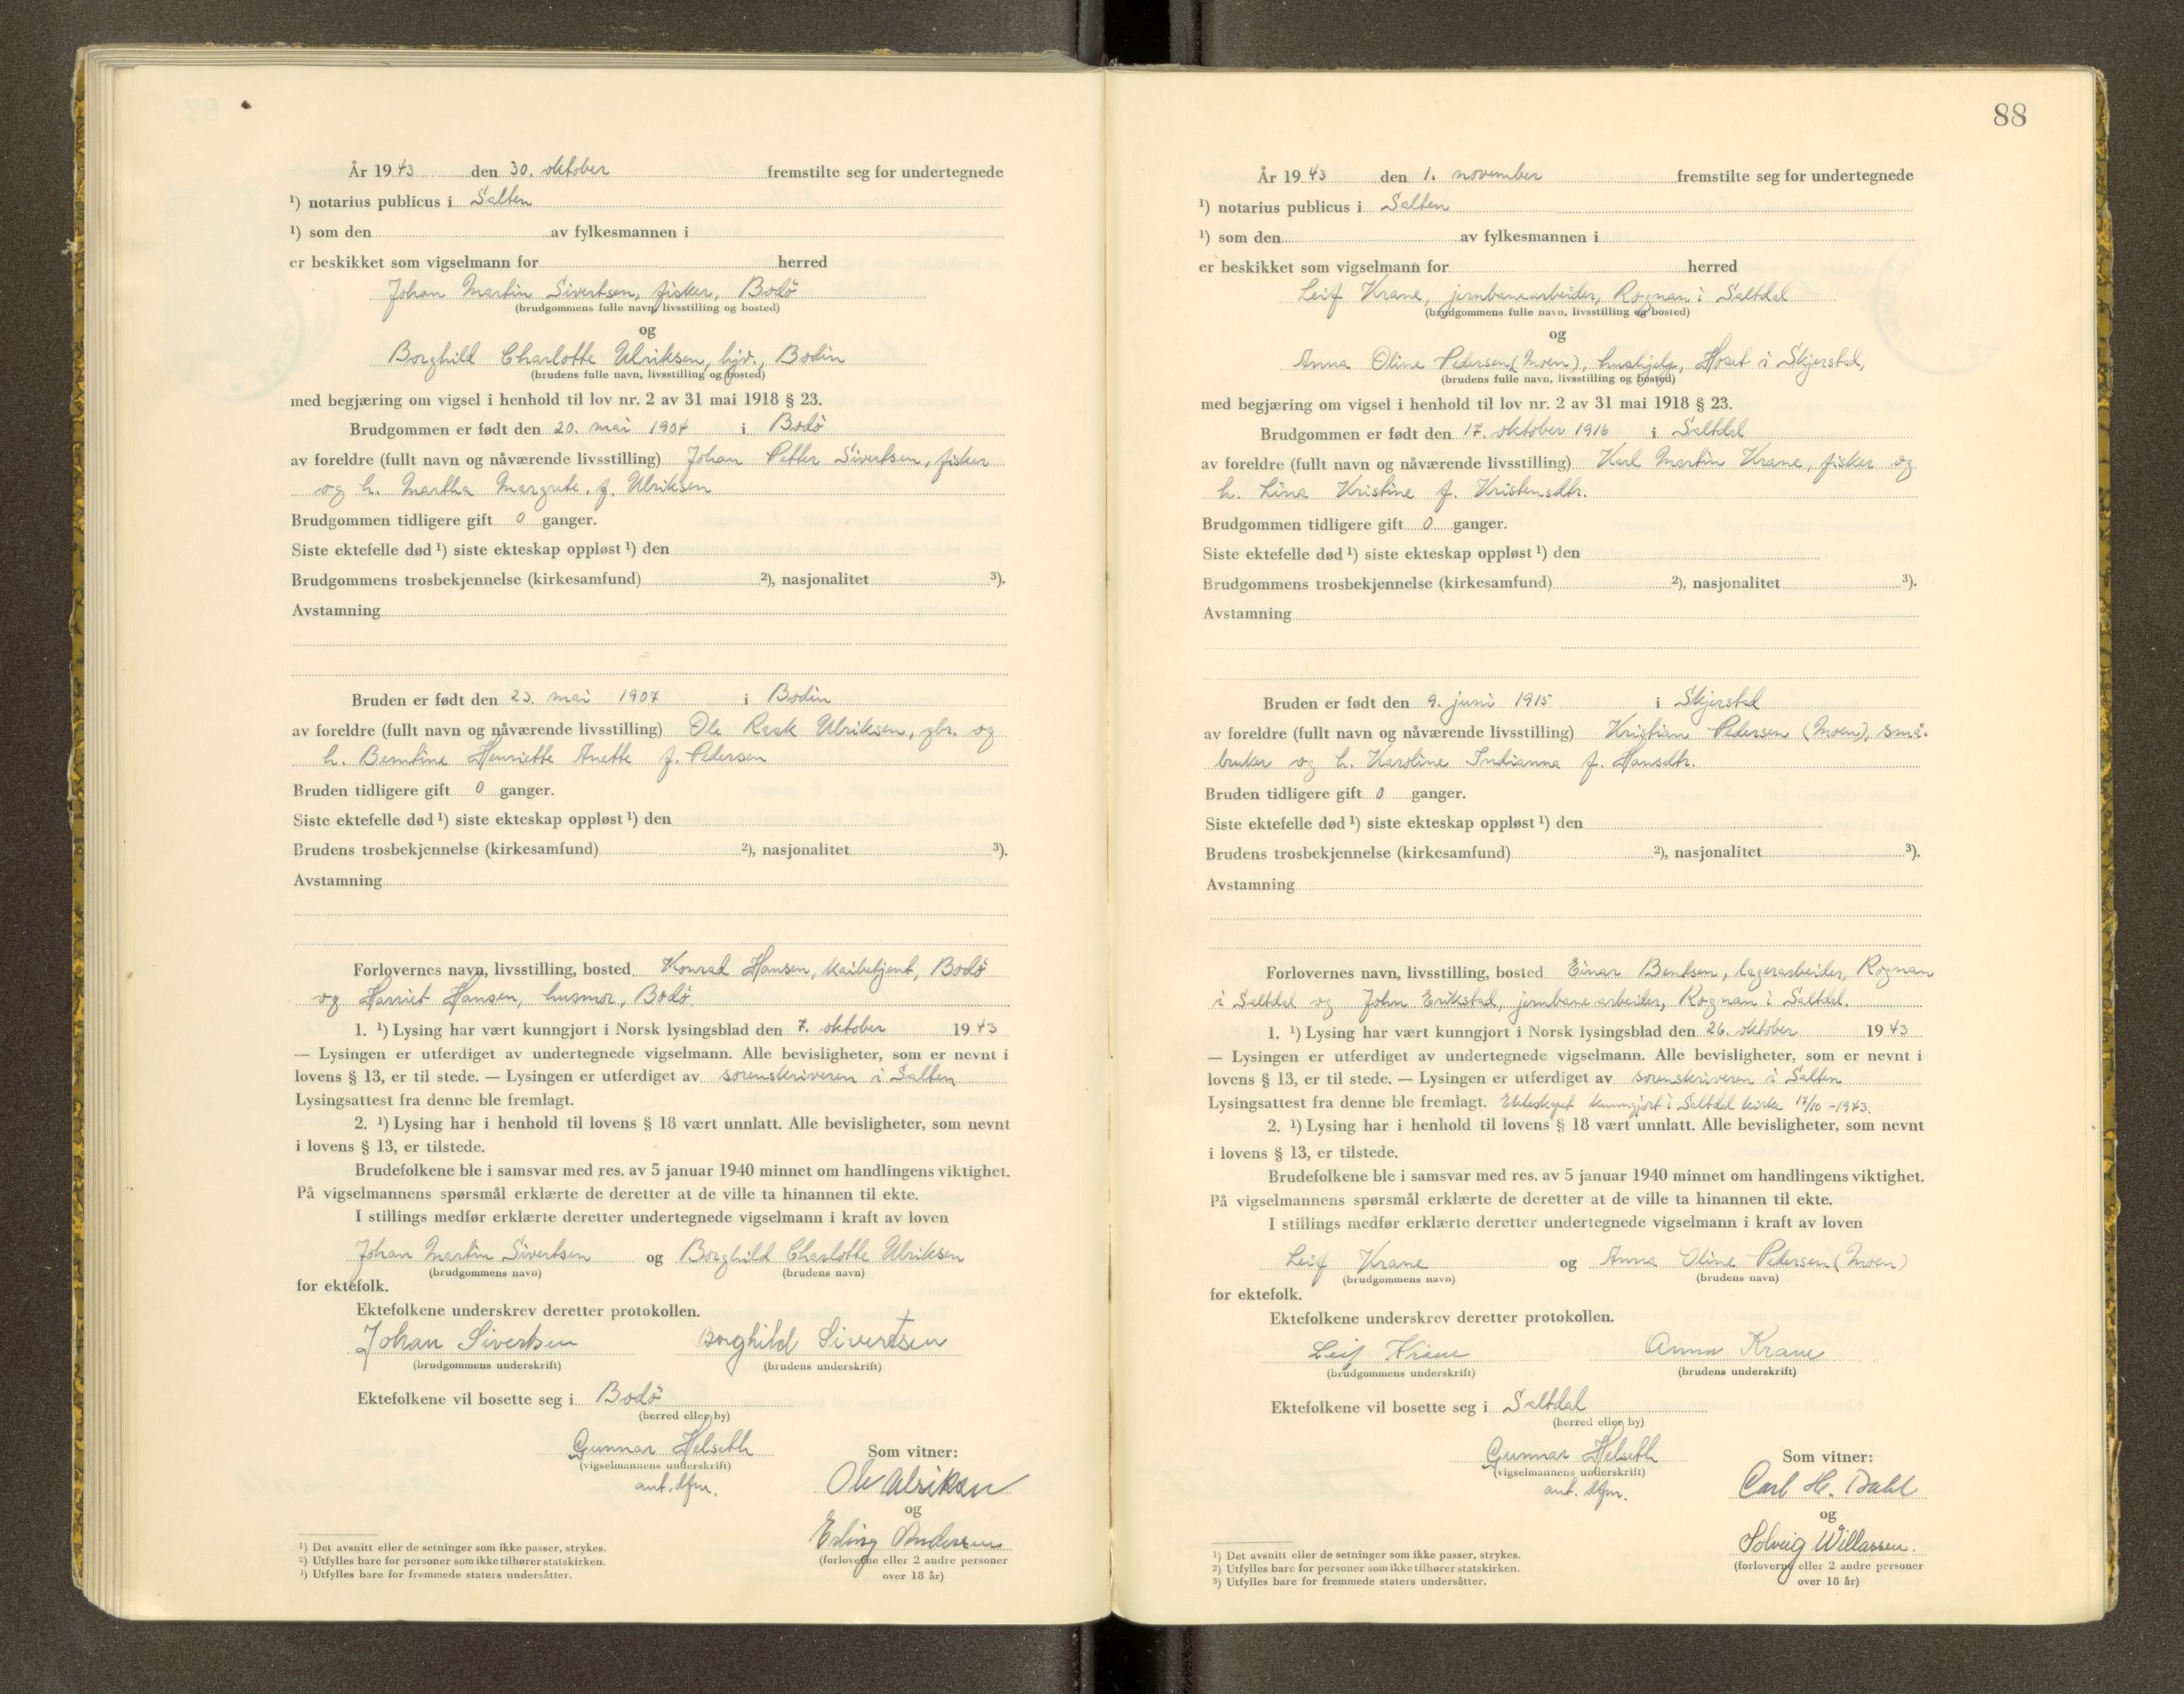 År 1943 den 30. oktober fremstilte seg for undertegnede
¹) notarius publicus i Salten
¹) som den av fylkesmannen i
er beskikket som vigselmann for herred
Johan Martin Sivertsen, fisker, Bodö
(brudgommens fulle navn, livsstilling og bosted)
og
Borghild Charlotte Ulriksen, hjv., Bodin
(brudens fulle navn, livsstilling og bosted)
med begjæring om vigsel i henhold til lov nr. 2 av 31 mai 1918 § 23.
Brudgommen er født den 20. mai 1904 i Bodö
av foreldre (fullt navn og nåværende livsstilling) Johan Petter Sivertsen, fisker
og h. Martha Margrete, f. Ulriksen
Brudgommen tidligere gift 0 ganger.
Siste ektefelle død ¹) siste ekteskap oppløst ¹) den
Brudgommens trosbekjennelse (kirkesamfund) ²), nasjonalitet ³).
Avstamning
Bruden er født den 23. mai 1907 i Bodin
av foreldre (fullt navn og nåværende livsstilling) Ole Rask Ulriksen, gbr. og
h. Berntine Henriette Anette f. Pedersen
Bruden tidligere gift 0 ganger.
Siste ektefelle død ¹) siste ekteskap oppløst ¹) den
Brudens trosbekjennelse (kirkesamfund) ²), nasjonalitet ³).
Avstamning
Forlovernes navn, livsstilling, bosted Konrad Hansen, kaibetjent, Bodö
og Harriet Hansen, husmor, Bodö.
1. ¹) Lysing har vært kunngjort i Norsk lysingsblad den 7. oktober 1943
— Lysingen er utferdiget av undertegnede vigselmann. Alle bevisligheter, som er nevnt i
lovens § 13, er til stede. — Lysingen er utferdiget av sorenskriveren i Salten
Lysingsattest fra denne ble fremlagt.
2. ¹) Lysing har i henhold til lovens § 18 vært unnlatt. Alle bevisligheter, som nevnt
i lovens § 13, er tilstede.
Brudefolkene ble i samsvar med res. av 5 januar 1940 minnet om handlingens viktighet.
På vigselmannens spørsmål erklærte de deretter at de ville ta hinannen til ekte.
I stillings medfør erklærte deretter undertegnede vigselmann i kraft av loven
Johan Martin Sivertsen og Borghild Charlotte Ulriksen
(brudgommens navn) (brudens navn)
for ektefolk.
Ektefolkene underskrev deretter protokollen.
Johan Sivertsen Borghild Sivertsen
(brudgommens underskrift) (brudens underskrift)
Ektefolkene vil bosette seg i Bodö
(herred eller by)
Gunnar Helseth Som vitner:
(vigselmannens underskrift)
aut. dfm. Ole Ulriksen
og
Erling Andersen
(forloverne eller 2 andre personer
over 18 år)
¹) Det avsnitt eller de setninger som ikke passer, strykes.
²) Utfylles bare for personer som ikke tilhører statskirken.
³) Utfylles bare for fremmede staters undersåtter.
88
År 1943 den 1. november fremstilte seg for undertegnede
¹) notarius publicus i Salten
¹) som den av fylkesmannen i
er beskikket som vigselmann for herred
Leif Krane, jernbanearbeider, Rognan i Saltdal
(brudgommens fulle navn, livsstilling og bosted)
og
Anna Oline Pedersen (Moen), hushjelp, Hoset i Skjerstad,
(brudens fulle navn, livsstilling og bosted)
med begjæring om vigsel i henhold til lov nr. 2 av 31 mai 1918 § 23.
Brudgommen er født den 17. oktober 1916 i Saltdal
av foreldre (fullt navn og nåværende livsstilling) Karl Martin Krane, fisker og
h. Lina Kristine f. Kristensdtr.
Brudgommen tidligere gift 0 ganger.
Siste ektefelle død ¹) siste ekteskap oppløst ¹) den
Brudgommens trosbekjennelse (kirkesamfund) ²), nasjonalitet ³).
Avstamning
Bruden er født den 9. juni 1915 i Skjerstad
av foreldre (fullt navn og nåværende livsstilling) Kristian Pedersen (Moen), små-
bruker og h. Karoline Indianna f. Hansdtr.
Bruden tidligere gift 0 ganger.
Siste ektefelle død ¹) siste ekteskap oppløst ¹) den
Brudens trosbekjennelse (kirkesamfund) ²), nasjonalitet ³).
Avstamning
Forlovernes navn, livsstilling, bosted Einar Bentsen, lagerarbeider, Rognan
i Saltdal og John Erikstad, jernbanearbeider, Rognan i Saltdal.
1. ¹) Lysing har vært kunngjort i Norsk lysingsblad den 26. oktober 1943
— Lysingen er utferdiget av undertegnede vigselmann. Alle bevisligheter, som er nevnt i
lovens § 13, er til stede. — Lysingen er utferdiget av sorenskriveren i Salten
Lysingsattest fra denne ble fremlagt. Ekteskapet kunngjort i Saltdal kirke 17/10 -1943.
2. ¹) Lysing har i henhold til lovens § 18 vært unnlatt. Alle bevisligheter, som nevnt
i lovens § 13, er tilstede.
Brudefolkene ble i samsvar med res. av 5 januar 1940 minnet om handlingens viktighet.
På vigselmannens spørsmål erklærte de deretter at de ville ta hinannen til ekte.
I stillings medfør erklærte deretter undertegnede vigselmann i kraft av loven
Leif Krane og Anna Oline Pedersen (Moen)
(brudgommens navn) (brudens navn)
for ektefolk.
Ektefolkene underskrev deretter protokollen.
Leif Krane Anna Krane
(brudgommens underskrift) (brudens underskrift)
Ektefolkene vil bosette seg i Saltdal
(herred eller by)
Gunnar Helseth Som vitner:
(vigselmannens underskrift)
aut. dfm. Carl H. Dahl
og
Solveig Willassen.
(forloverne eller 2 andre personer
over 18 år)
¹) Det avsnitt eller de setninger som ikke passer, strykes.
²) Utfylles bare for personer som ikke tilhører statskirken.
³) Utfylles bare for fremmede staters undersåtter.